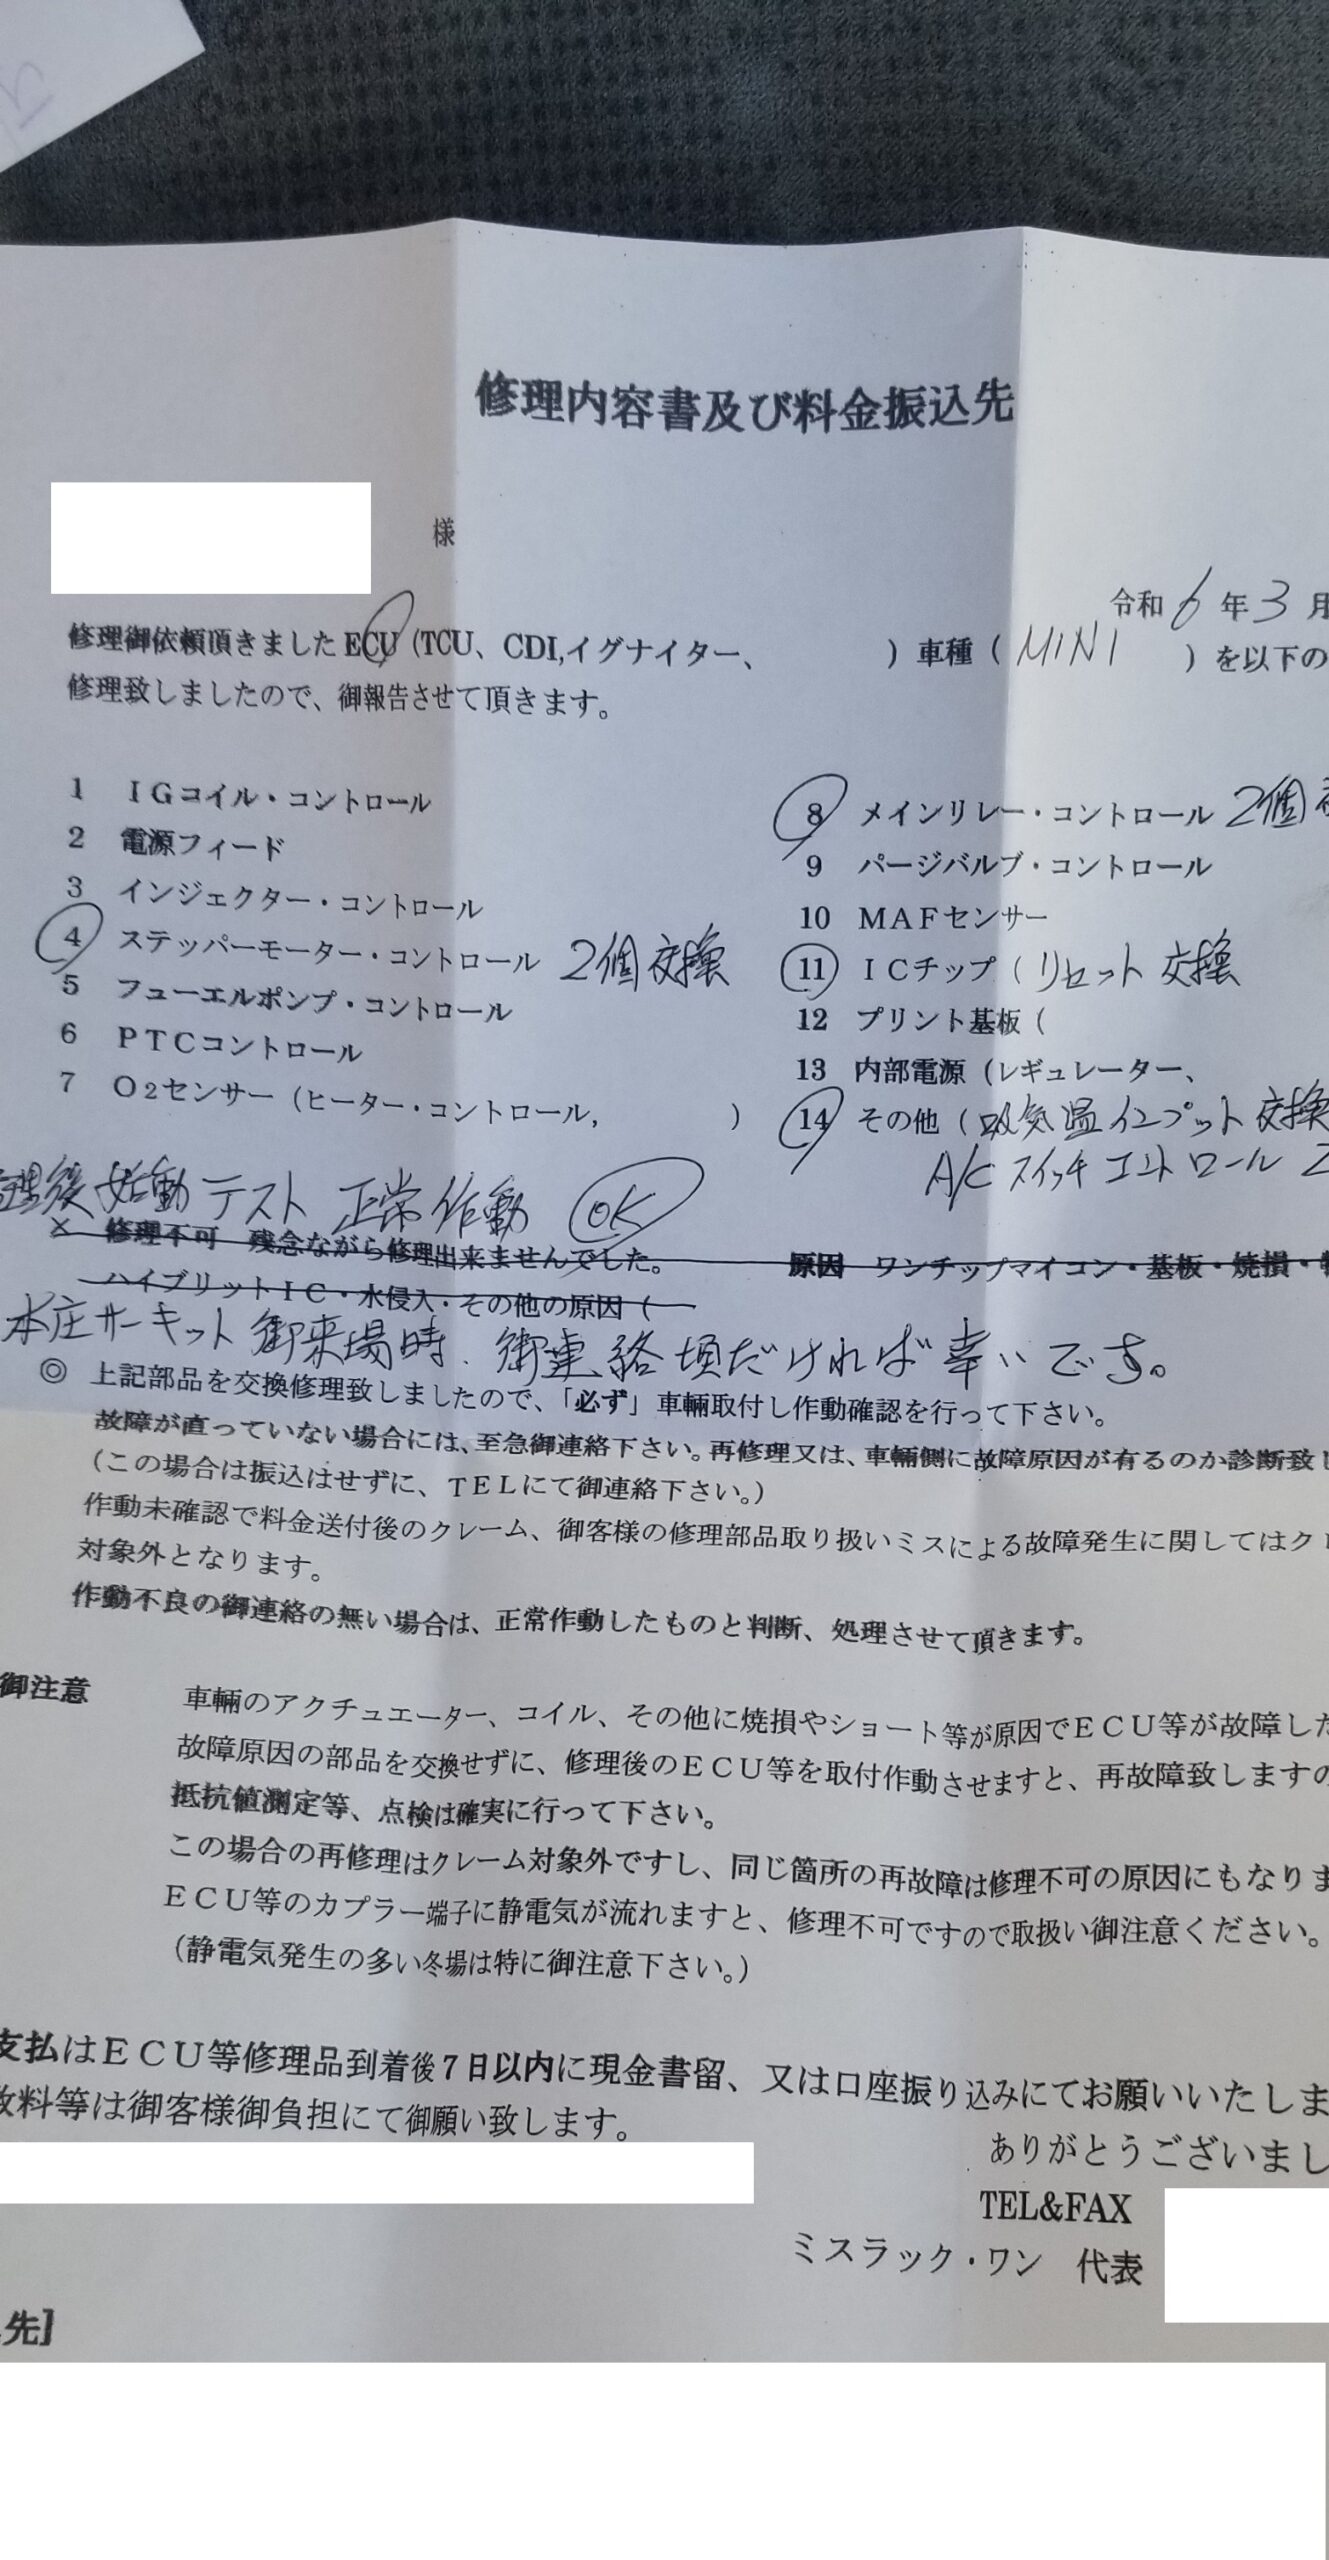 修理内容書及び料金振込先
様
令和6年3月
修理御依頼頂きましたECU(TCU、CDI,イグナイター、 )車種(MINI )を以下の
修理致しましたので、御報告させて頂きます。
1 IGコイル・コントロール
2 電源フィード
3 インジェクター・コントロール
4 ステッパーモーター・コントロール 2個交換
5 フューエルポンプ・コントロール
6 PTCコントロール
7 O2センサー(ヒーター・コントロール, )
8 メインリレー・コントロール 2個
9 パージバルブ・コントロール
10 MAFセンサー
11 ICチップ(リセット交換
12 プリント基板(
13 内部電源(レギュレーター、
14 その他(吸気温インプット交換
A/Cスイッチコントロール 2
理後始動テスト正常作動 OK
× 修理不可 残念ながら修理出来ませんでした。 原因 ワンチップマイコン・基板・焼損・
ハイブリットIC・水侵入・その他の原因(
本庄サーキット御来場時、御連絡頃だければ幸いです。
◎ 上記部品を交換修理致しましたので、「必ず」車輛取付し作動確認を行って下さい。
故障が直っていない場合には、至急御連絡下さい。再修理又は、車輛側に故障原因が有るのか診断致し
(この場合は振込はせずに、TELにて御連絡下さい。)
作動未確認で料金送付後のクレーム、御客様の修理部品取り扱いミスによる故障発生に関してはクレ
対象外となります。
作動不良の御連絡の無い場合は、正常作動したものと判断、処理させて頂きます。
御注意 車輛のアクチュエーター、コイル、その他に焼損やショート等が原因でECU等が故障した
故障原因の部品を交換せずに、修理後のECU等を取付作動させますと、再故障致しますの
抵抗値測定等、点検は確実に行って下さい。
この場合の再修理はクレーム対象外ですし、同じ箇所の再故障は修理不可の原因にもなりま
ECU等のカプラー端子に静電気が流れますと、修理不可ですので取扱い御注意ください。
(静電気発生の多い冬場は特に御注意下さい。)
支払はECU等修理品到着後7日以内に現金書留、又は口座振り込みにてお願いいたしま
数料等は御客様御負担にて御願い致します。
ありがとうございまし
TEL&FAX
ミスラック・ワン 代表
先]